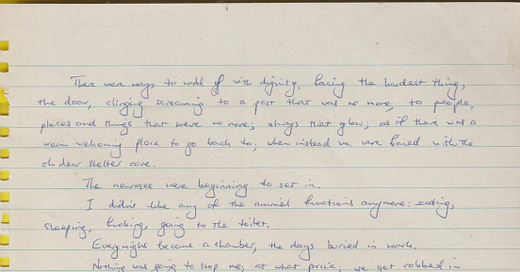 There were ways to walk off with dignity, facing the hardest thing,
the door, clinging screaming to a past that was no more, to people,
places and things that were no more, always that glow, as if there was a
warm welcoming place to go back to, when instead we were faced with the
oh dear shelter care.
The neuroses were beginning to set in.
I didn't like any of the animal functions anymore: eating,
sleeping, fucking, going to the toilet.
Every night became a chamber, the days buried in work.
Nothing was going to stop me, at what price, we got robbed in